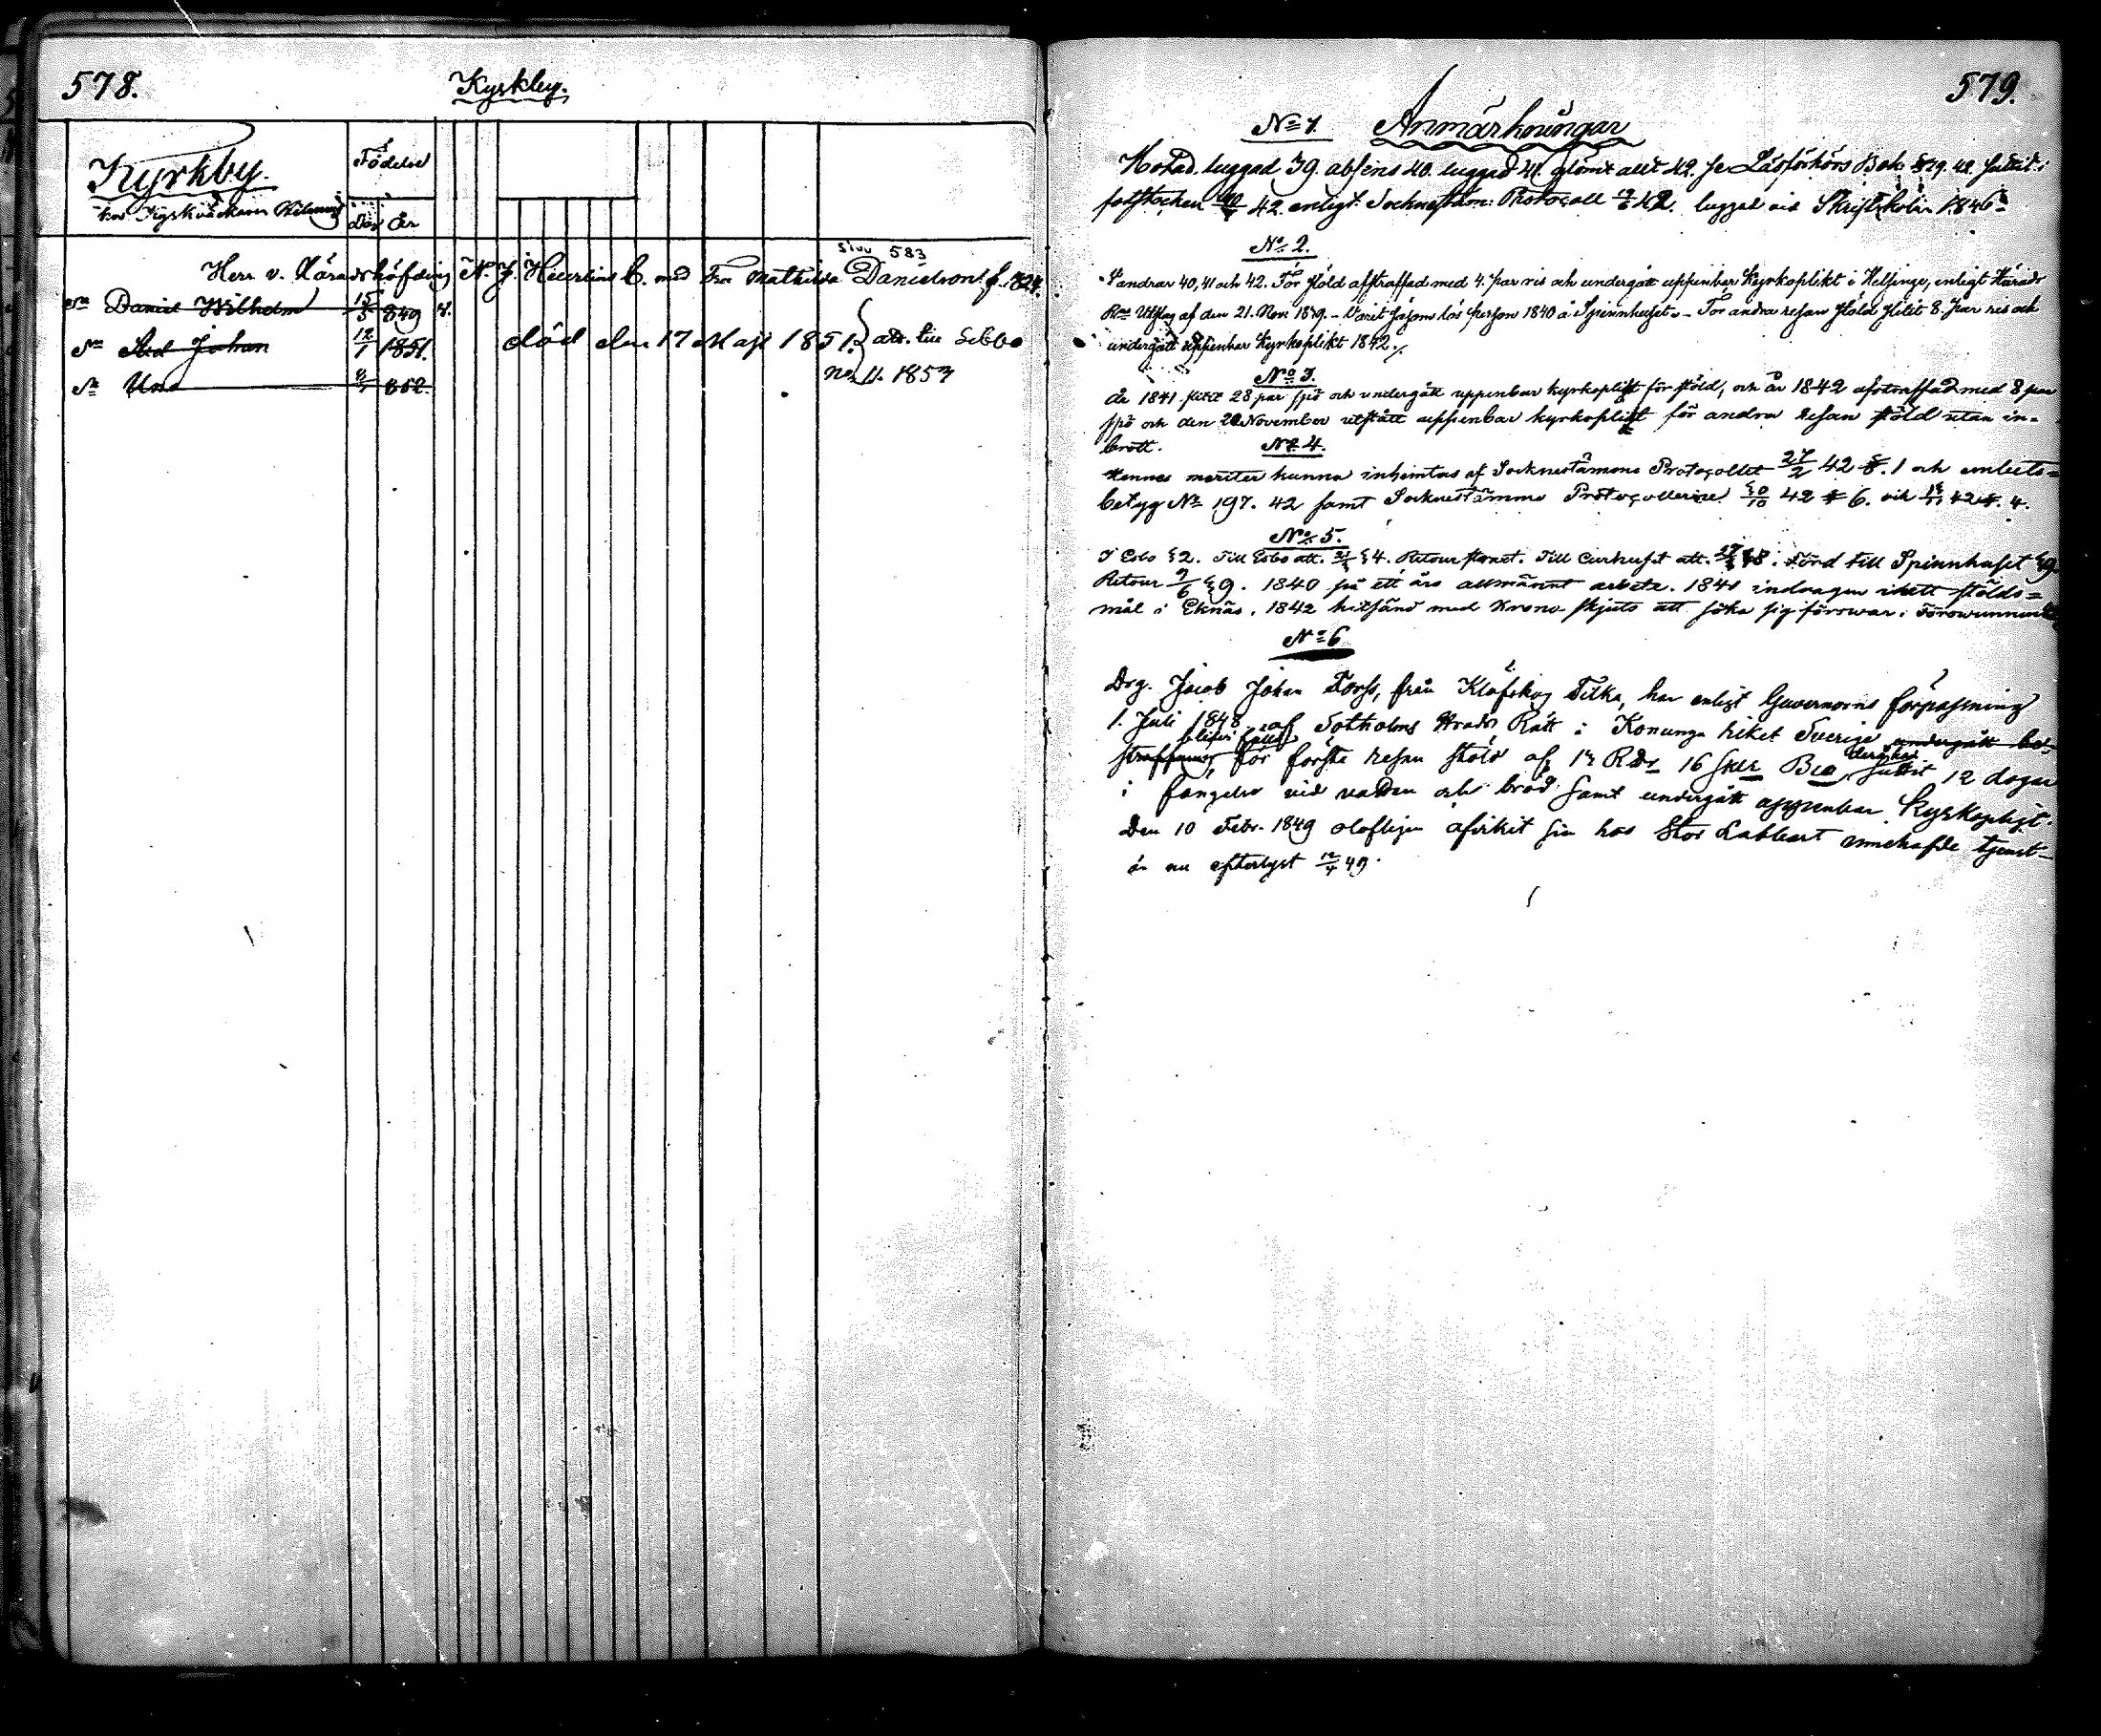 578.
Kyrkby.
Kyrkby.
hos Kyrkväktaren
Födelse
Dag År
sivu 583
Herr v. Häradshöfding N. J. H. med Fru Mathilda Danielson f. 1824.
Sn Daniel Wilhelm 15/5 849 v.
Sn Johan 12/1 1851. död den 17 Maji 1851. att. till Sibbo
Sn Uno 8/7 852. No 11. 1853
579.
No 1. Anmärkningar
luggad 39. absens 40. luggad 41. glömt allt 42. se Läsförhörs Bok 39. 42. suttit i
fotstocken 42 enligt Sockenstäm: Protocoll 42. luggad vid Skriftskolan 1846.
No 2.
Vandrar 40, 41 och 42. För stöld afstraffad med 4. par ris och undergått uppenbar Kyrkoplikt i Helsinge, enligt Härads
Rns Utslag af den 21. Nov. 1839. - Varit såsom lös person 1840 å Spinnhuset. - För andra resan stöld slitit 8. par ris och
undergått uppenbar Kyrkoplikt 1842./.
No 3.
år 1841 slitit 28 par spö och undergått uppenbar kyrkoplikt för stöld, och år 1842 afstraffad med 8 par
spö och den 20 November utstått uppenbar kyrkoplikt för andra resan stöld utan in-
brott.
No 4.
Hennes meriter kunna inhemtas af Sockenstämmo Protocollet 27/2 42 §. 1 och enbets-
betyg No 197. 42 samt Sockenstämmo Protocollerne 30/10 42 § 6. och 42 §. 4.
No 5.
I Esbo 32. Till Esbo att. 34. Retour. Till Curhuset att. 38. Förd till Spinnhuset 39.
Retour 7/6 39. 1840 på ett års allmännt arbete. 1841 indragen i ett stölds-
mål i Eknäs. 1842 hitsänd med Krono skjuts att söka sig försvar.
No 6
Drg. Jacob Johan Forss, från Klöfskog Tilka, har enligt Guvernörns förpassning
1. Juli 1848 af Sotholms Hrads Rätt i Konunga riket Sverige undergått be-
straffning blifvit fälld för första resan stöld af 12 Rdr 16 sker Bco derföre suttit 12 dagar
i fängelse vid vatten och bröd samt undergått uppenbar Kyrkopligt.
Den 10 Febr. 1849 olofligen afvikit sin hos Stor Labbart innehafde tjenst-
är nu efterlyst 12/4 49.